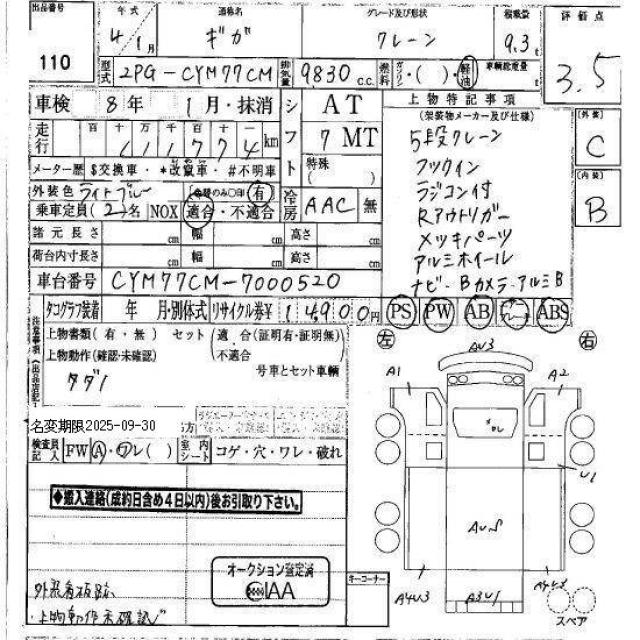 出品番号
110
年式
4/1月
通称名
ギガ
グレード及び形状
クレーン
積載量
9.3 t
評価点
3.5
型式
2PG-CYM77CM
排気量
9830 c.c.
燃料
ガソリン・( )・軽油
車輌総重量
t
車検 8年 1月・抹消
シフト
AT
7 MT
特殊
( )
上物特記事項
(架装物メーカー及び仕様)
5段クレーン
フックイン
ラジコン付
Rアウトリガー
メッキパーツ
アルミホイール
ナビ・Bカメラ・アルミB
[外装]
C
[内装]
B
走行
百 十 万 千 百 十
111774 km
メーター歴 $交換車・*改竄車・#不明車
外装色 ライトブルー
有
冷房
AAC 無
乗車定員(2)名 NOX 適合・不適合
諸元長さ cm 幅 cm 高さ cm
荷台内寸長さ cm 幅 cm 高さ cm
車台番号 CYM77CM-7000520
タコグラフ装着 年 月・別体式 リサイクル券¥ 14900円
PS PW AB ABS
注意事項(出品店記入)
上物書類(有・無) セット(適合(証明有・証明無)
不適合
上物動作(確認・未確認)
号車とセット車輌
タダノ
名変期限2025-09-30
検査員記入
FW A・ワレ( )
室内シート
コゲ・穴・ワレ・破れ
◆搬入連絡(成約日含め4日以内)後お引取り下さい。
オークション査定済
IAA
外装看板跡
・上物動作未確認
キーコーナー
左
右
AU3
A1
A2
U1
AUS
A4U3
A3U1
A4U3
スペア